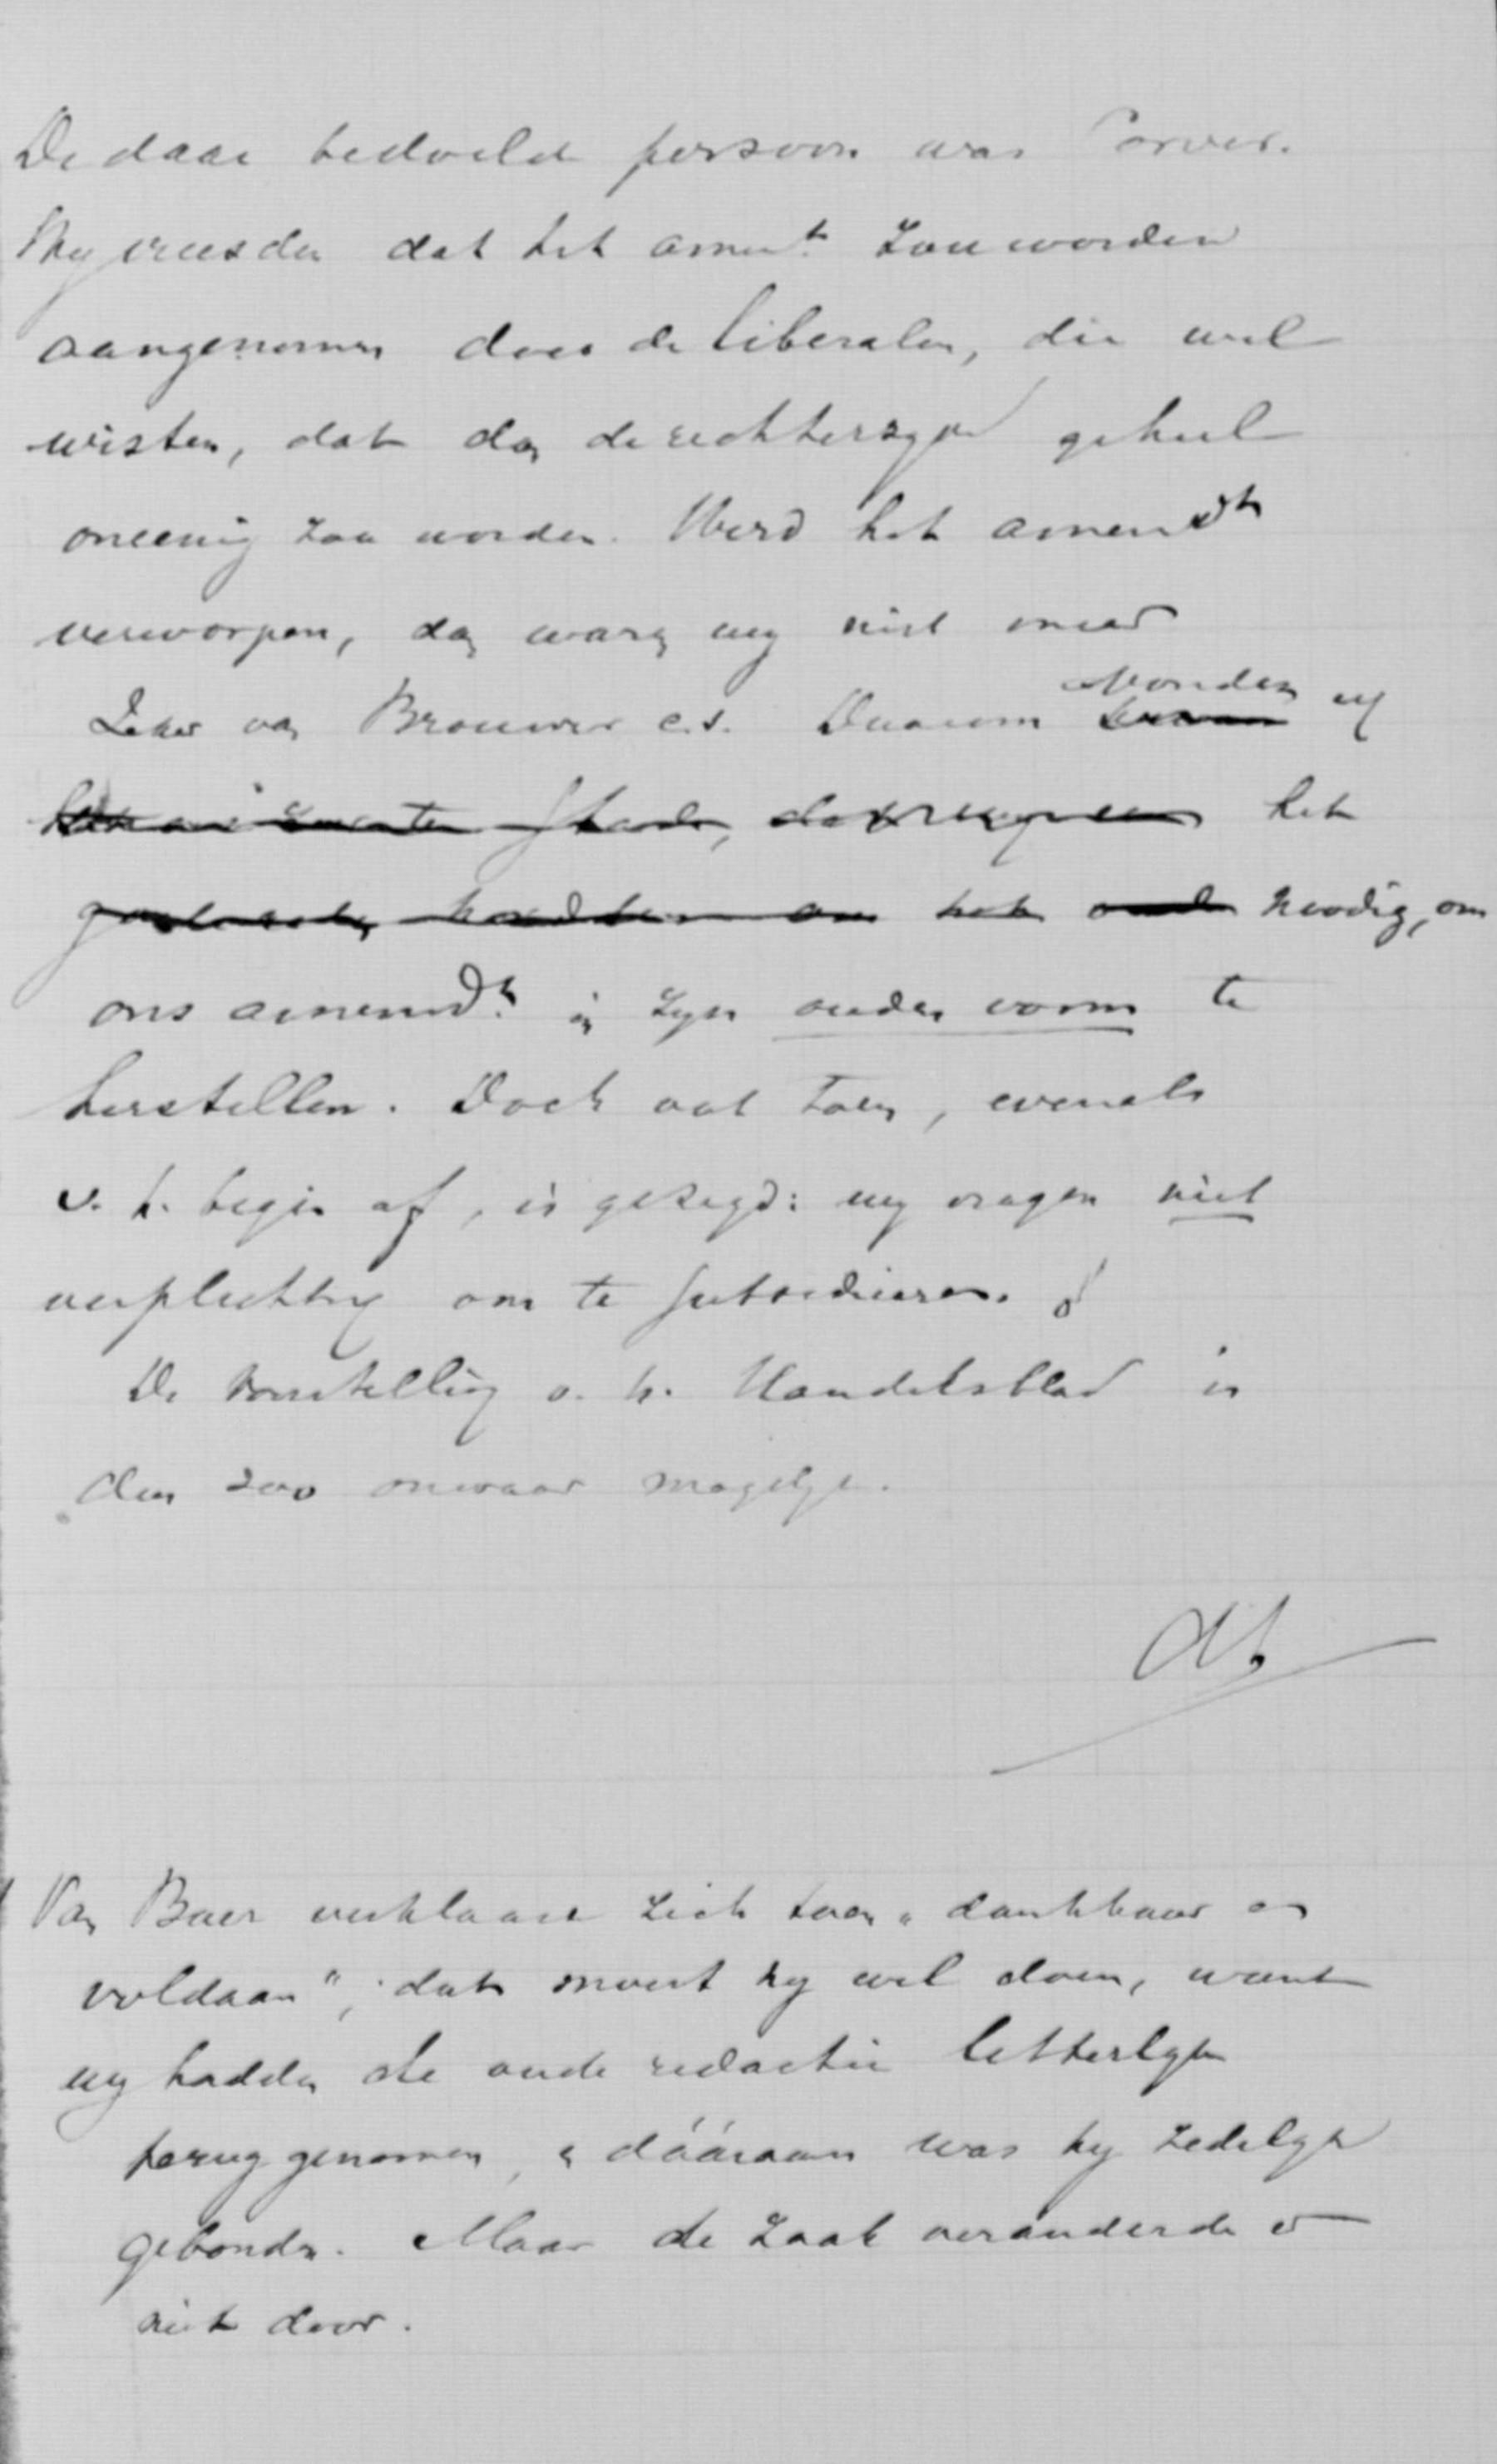 De daar bedoelde persoon was Corver.
Hy vreesde dat het amendt zou worden
aangenomen door de liberalen, die wel
wisten, dat dan de rechterzyde geheel
oneenig zou worden. Werd het amendt
verworpen, dan waren wy niet meer
zeker van Brouwer c.s. Daarom vonden wy
het
het noodig, om
ons amendt in zyn ouden vorm te
herstellen. Doch ook toen, evenals
v. h. begin af, is gezegd: wy vragen niet
verplichting om te subsidieeren.
De voorstelling v. h. Handelsblad is
dus zoo onwaar mogelyk.
Van Baer verklaarde zich toen "dankbaar en
voldaan"; dat moest hy wel doen, want
wy hadden de oude redactie letterlyk
terug genomen, & dááraan was hy zedelyk
gebonden. Maar de zaak veranderde er
niet door.